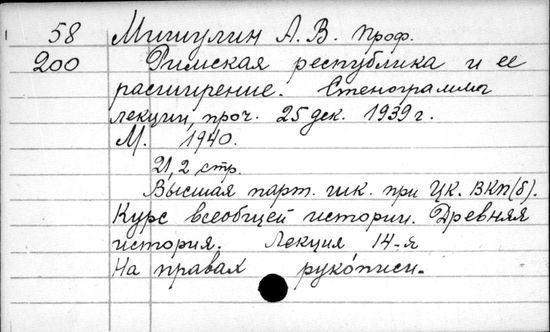 58 Мишулин А. В. проф.
200 Римская республика и ее
расширение. Стенограмма
лекции, проч. 25 дек. 1939 г.
М. 1940.
21, 2 стр.
Высшая парт. шк. при ЦК. ВКП(б).
Курс всеобщей истории. Древняя
история. Лекция 14-я
На правах рукописи.